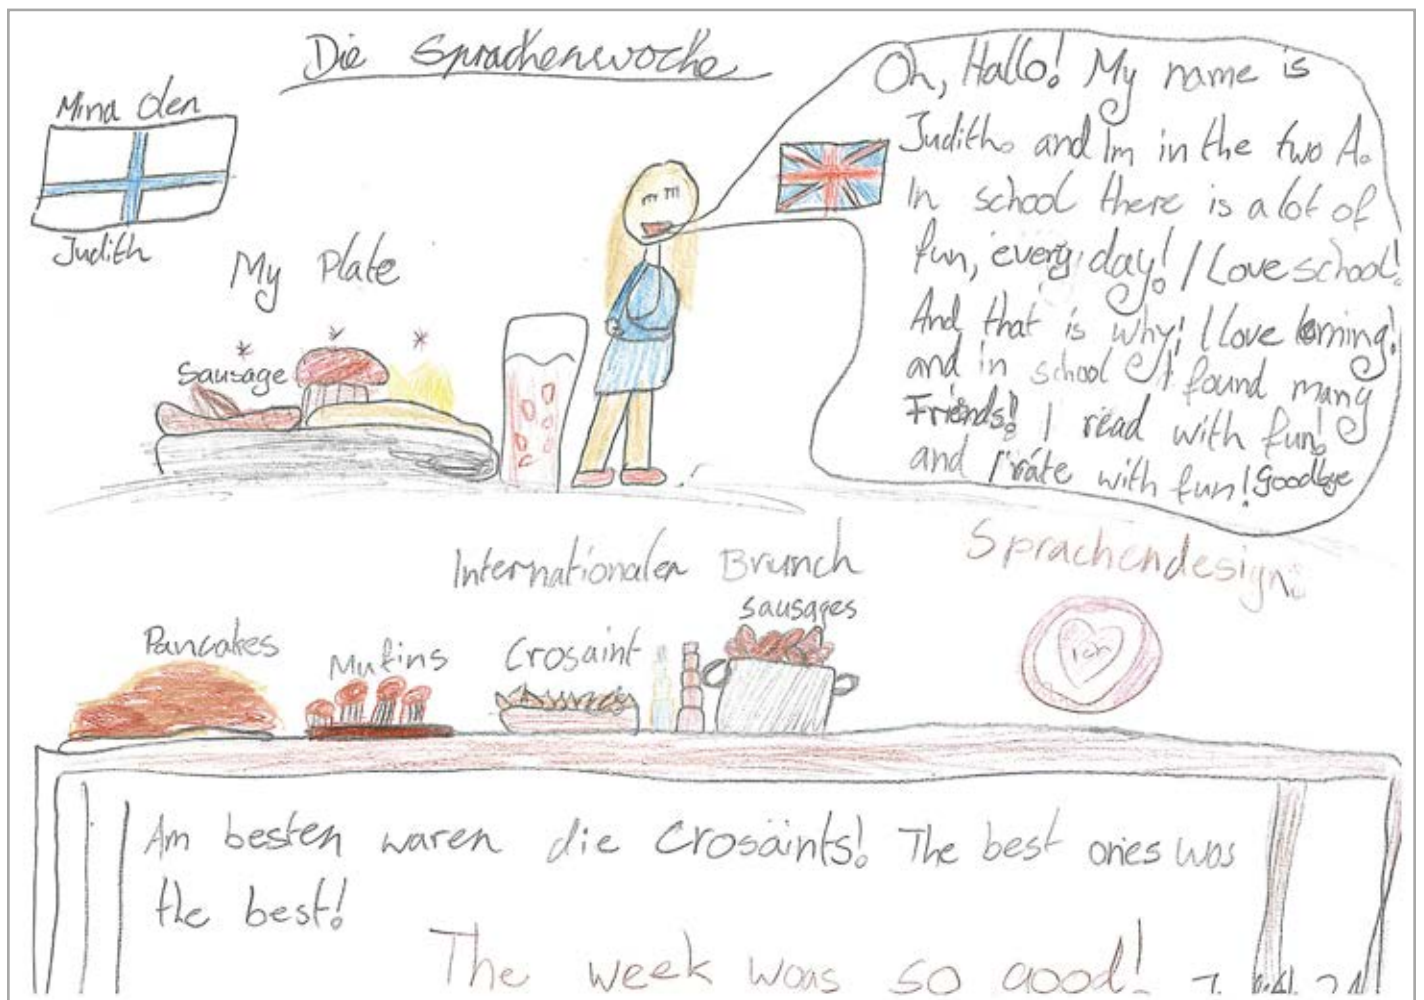 Die Sprachenwoche
Mina olen
Judith
Oh, Hallo! My name is
Judith. and Im in the two A.
In school there is a lot of
fun, every day! I Love school!
And that is why; I love lorning!
and in school I found many
Friends! I read with fun!
and I with fun! Goodbye
My Plate
Sausage
Internationaler Brunch
Sprachendesign.
ich
Pancakes
Mufins
Crosaint
sausages
Am besten waren die Crosaints! The best ones was
the best!
The week was so good!